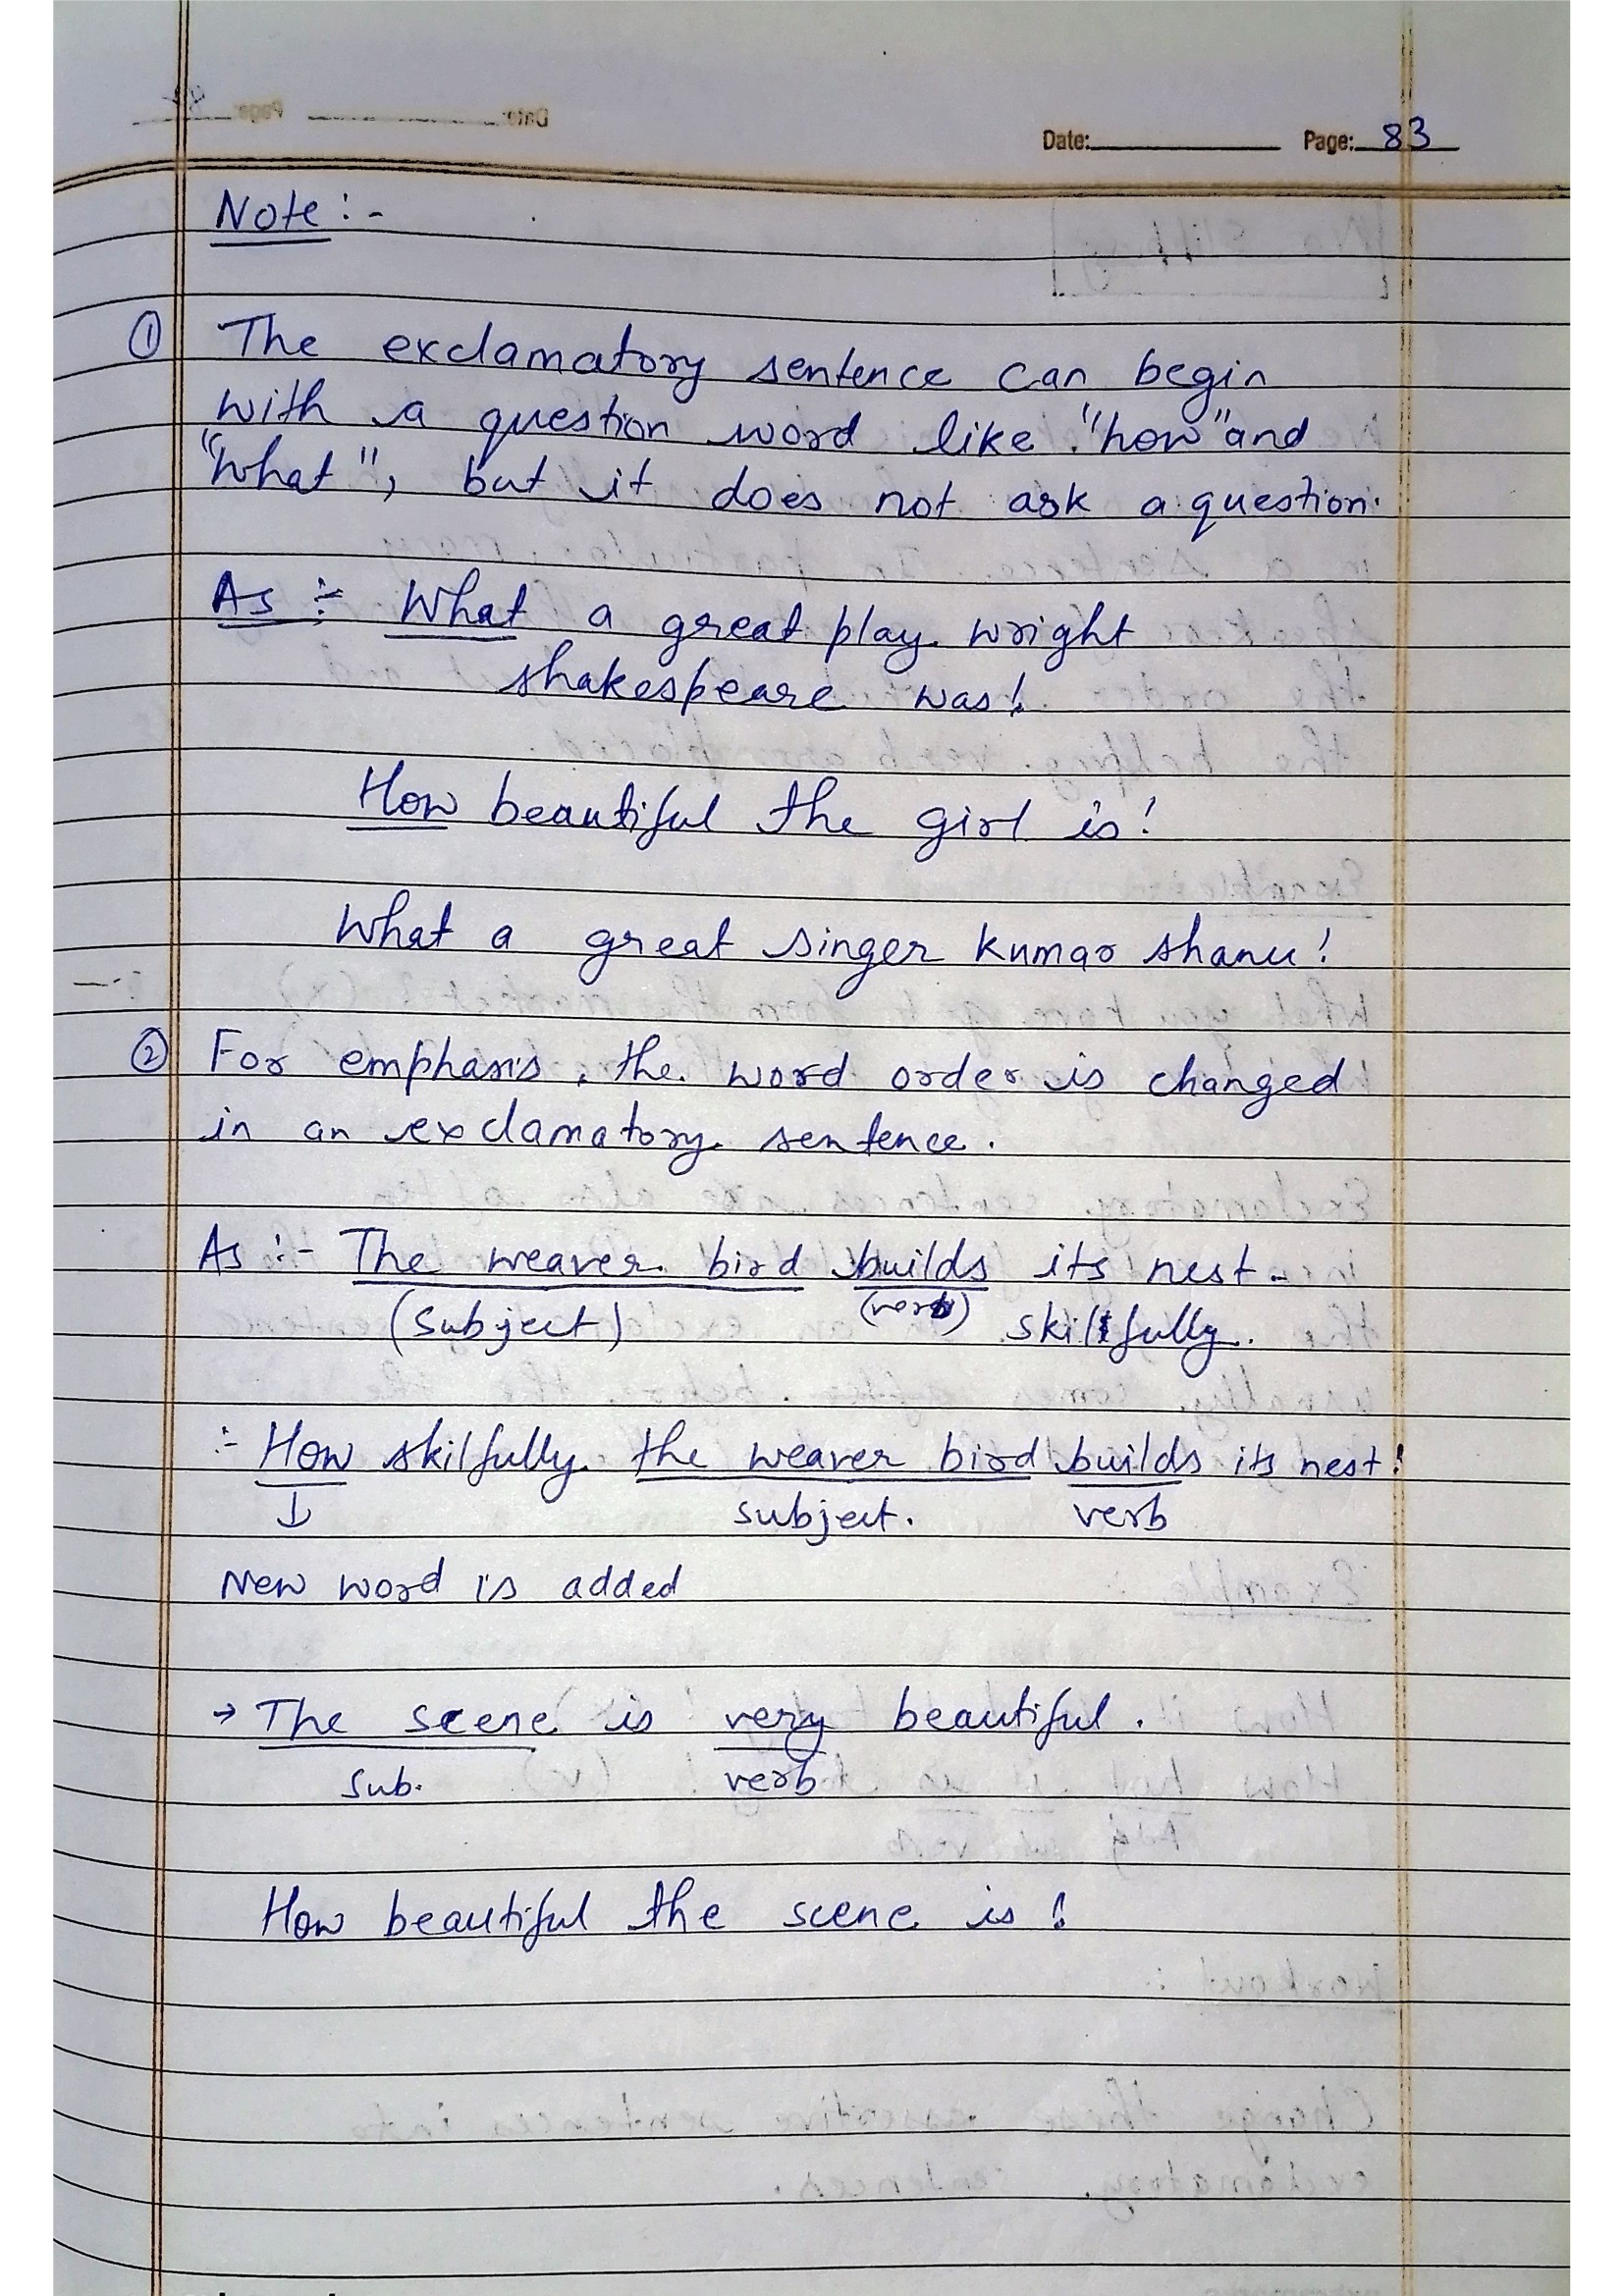 Date: Page: 83
Note :-
① The exclamatory sentence can begin
with a question word like "how" and
"what", but it does not ask a question.
As :- What a great play wright
shakespeare was!
How beautiful the girl is!
What a great singer Kumar Shanu!
② For emphasis, the word order is changed
in an exclamatory sentence.
As :- The weaver bird builds its nest
(Subject) (verb) skilfully.
:- How skilfully the weaver bird builds its nest!
↓ subject. verb
New word is added
→ The scene is very beautiful.
Sub. verb
How beautiful the scene is!